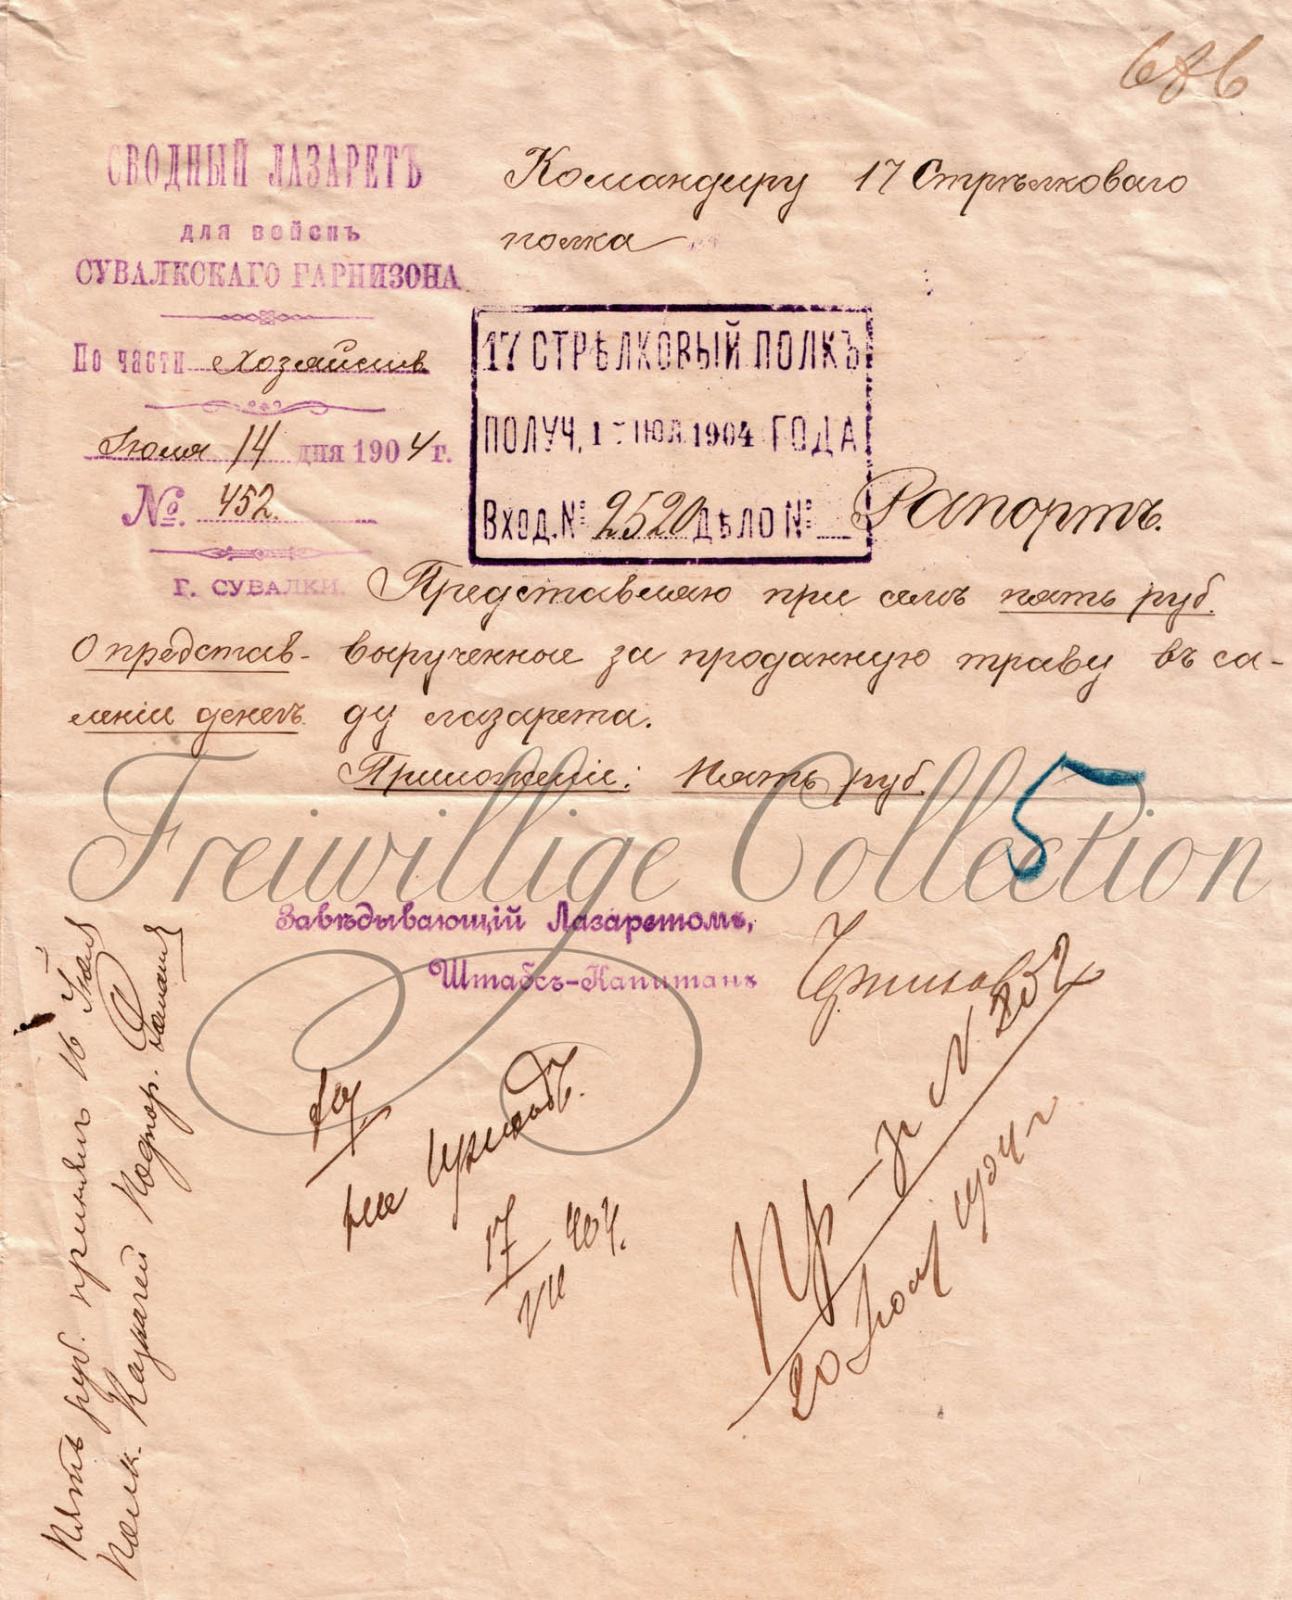 СВОДНЫЙ ЛАЗАРЕТЪ
для войскъ
СУВАЛКСКАГО ГАРНИЗОНА
По части Хозяйств
Июля 14 дня 1904 г.
№ 452.
Г. СУВАЛКИ.
О представ-
леніи денегъ
Командиру 17 Стрѣлковаго
полка
17 СТРѢЛКОВЫЙ ПОЛКЪ
ПОЛУЧ. 1 ІЮЛ 1904 ГОДА
Вход. № 2520 Дѣло №
Рапортъ.
Представляю при семъ пять руб.
вырученные за проданную траву въ са-
ду лазарета.
Приложеніе: Пять руб.
5
Freiwillige Collection
Завѣдывающій Лазаретомъ,
Штабсъ-Капитанъ
17/VII 904.
Пр-з N 852
20 Июля 1904 г
Пять руб. принялъ 16 Июля
Полк. Казначей Подпор.